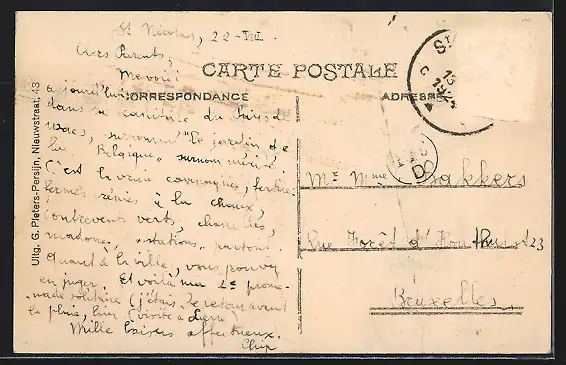 St Nicolas, 22-VII
Chers Parents,
Me voici
CARTE POSTALE
aujourd'hui
CORRESPONDANCE
ADRESSE
dans la capitale du Pays de
Waes, surnommé "le jardin de
la Belgique" surnom mérité
C'est la vraie campagne, fertile
fermes crépies à la chaux,
contrevents verts, chapelles,
madones, "stations" partout.
Quant à la ville, vous pouvez
en juger. Et voilà ma 2e prome-
nade solitaire (j'étais de retour avant
la pluie, hier (visite à Lierre)
Mille baisers affectueux.
Uitg. G. Pieters-Persijn, Nieuwstraat, 43
St
D
Mr Mme Bakkers
Rue Forêt d'Houthulst 23
Bruxelles